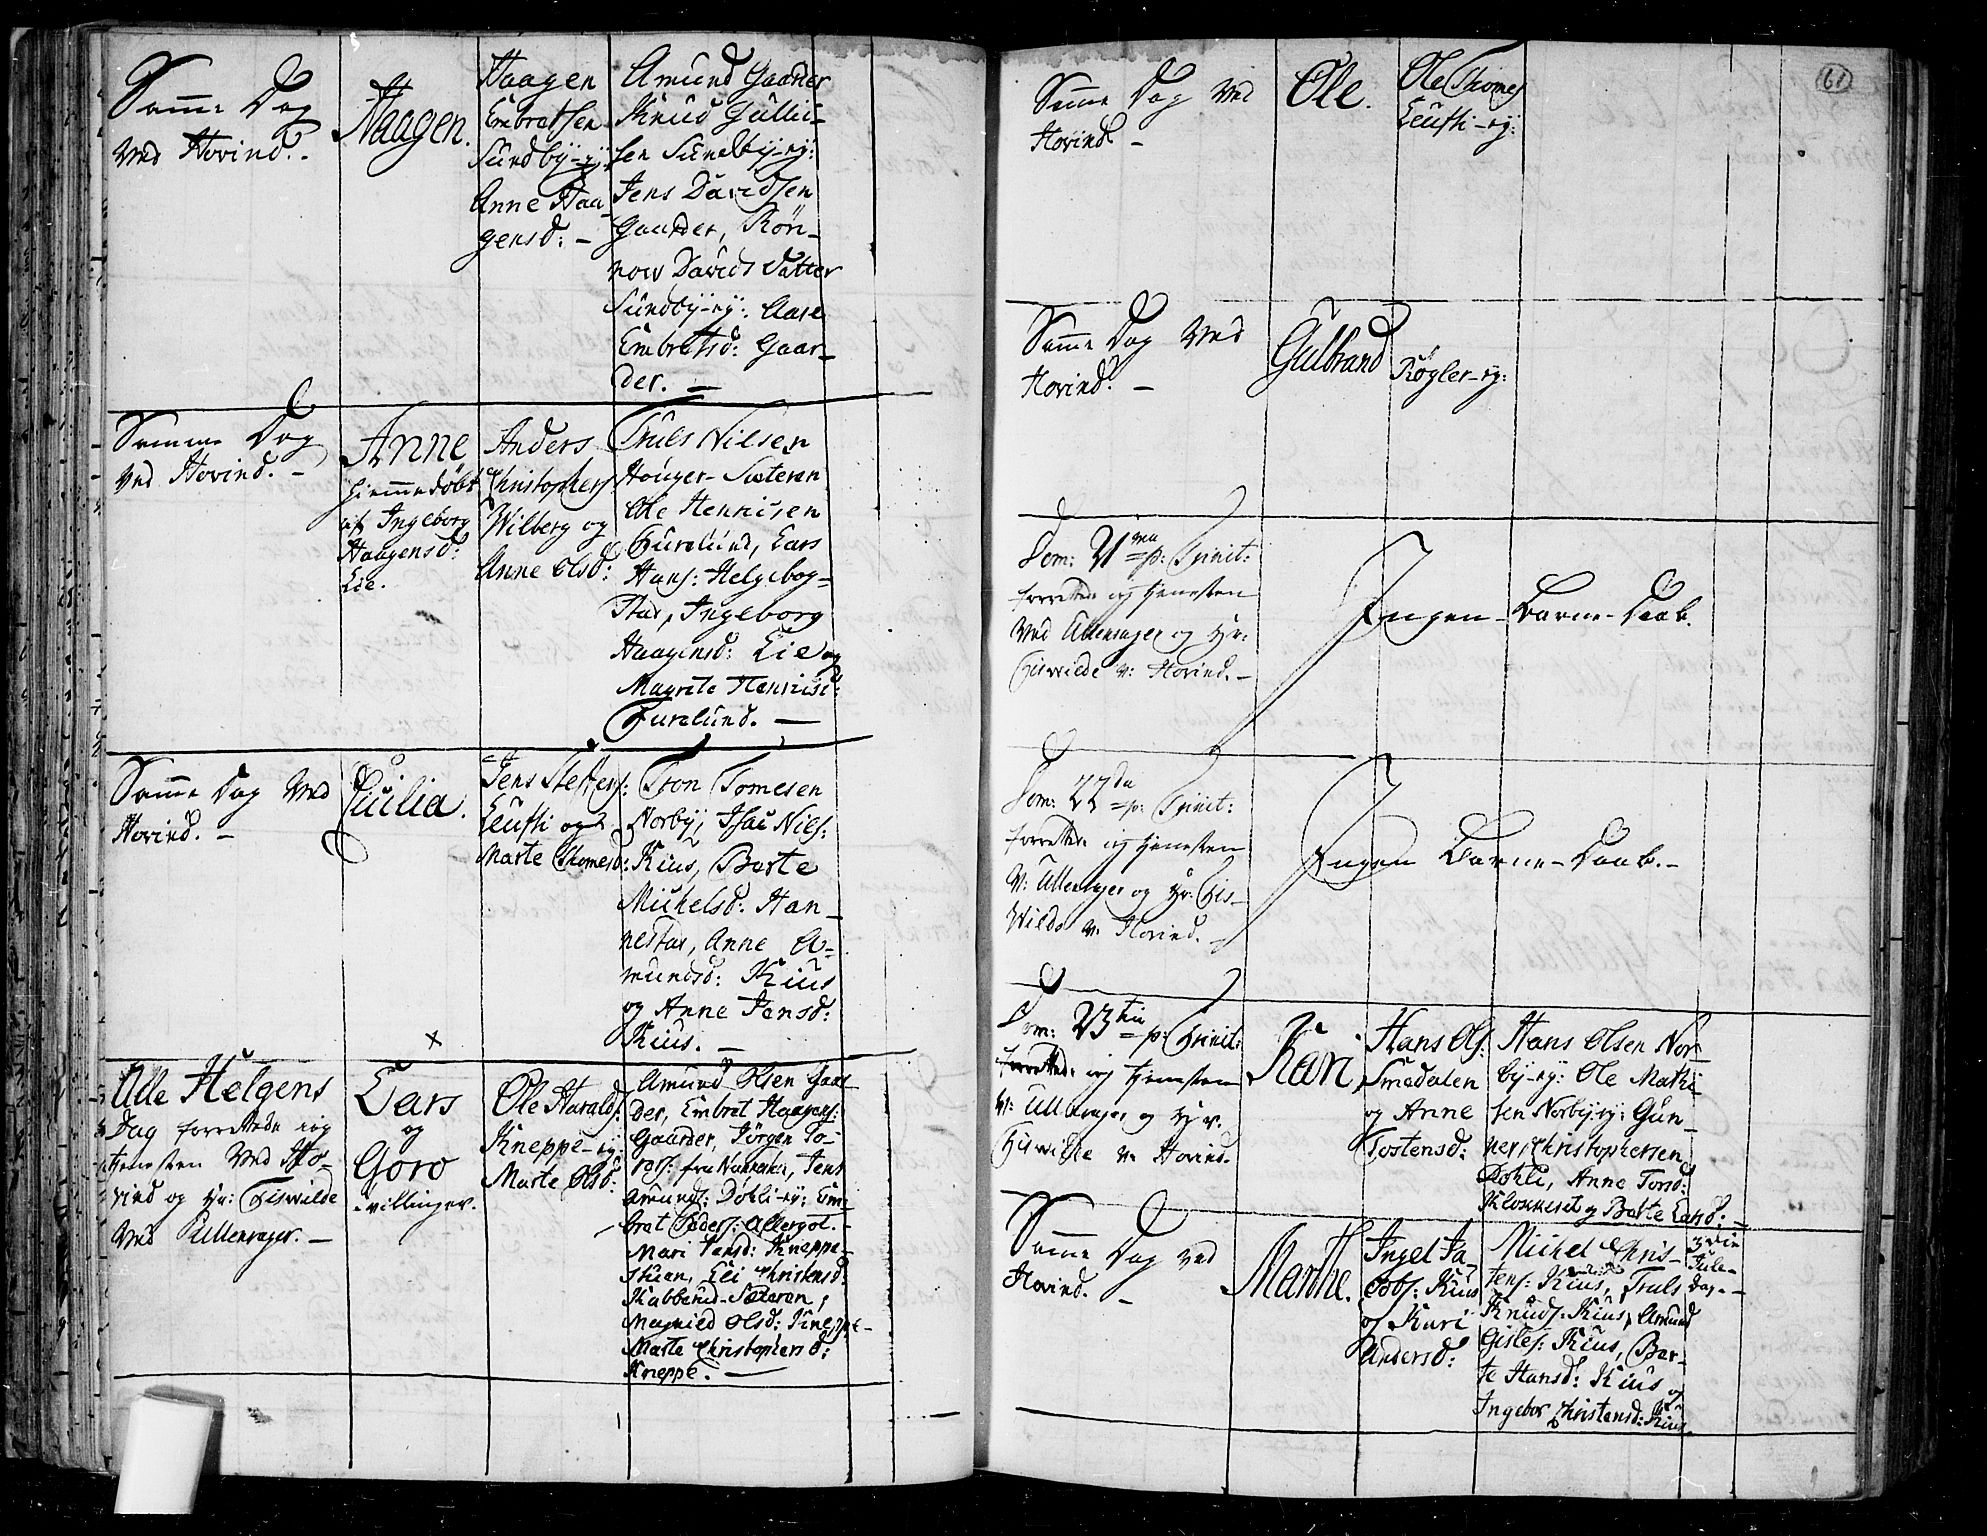 Samme Dag
ved Hovind. -
Haagen.
Haagen
Embretsen
Sundby-ej:
Anne Haa-
gensd: -
Amund Gaarder
Knud Gulli-
sen Sundby-ej:
Jens Davidsen
Gaarder, Rön-
now Davids Datter
Sundby-ej: Aase
Embretsd: Gaar-
der. -
Samme Dag
ved Hovind. -
Anne
hiemmedöbt
af Ingeborg
Haagensd:
Lie.
Anders
Christophers:
Wilberg og
Anne Olsd:
Truls Nilsen
Houger-Sæteren
Ole Hennisen
Furulund, Lars
Hans: Helgebog-
stad, Ingeborg
Haagensd: Lie og
Magrete Hennisd:
Furulund. -
Samme Dag ved
Hovind. -
Giulia.
Jens Steffens:
Leufti og
Marte Thomesd:
Tron Tomesen
Norby, Isac Niels:
Kius, Barte
Michelsd: Han-
nestad, Anne A-
mundsd: Kius
og Anne Jensd:
Kius. -
Alle Helgens
Dag forrettede ieg
tienesten ved Ho-
vind og Hr: Giswilde
ved Ullensager. -
x
Lars
og
Goro
tvillinger.
Ole Haralds:
Kneppe-ej:
Marte Olsd:
Amund Olsen Gaar
der, Embret Haagens:
Gaarder, Jörgen To-
rers: fra Nannestad, Jens
Amunds: Döhli-ej: Em-
bret Peders: Allergot.
Mari Jensd: Kneppe-
stuen, Eli Christensd:
Kabberud-Sæteren,
Magnild Olsd: Kneppe-
Marte Christophersd:
Kneppe. -
61
Samme Dag ved
Hovind -
Ole.
Ole Thomes
Leufti-ej:
Samme Dag ved
Hovind. -
Gulbrand
Rögler-ej:
Dom: 21 ma p: Trinit:
forrettede ieg tienesten
ved Ullensager og Hr:
Giswilde v: Hovind. -
Ingen Barne-Daab.
Dom: 22 da p: Trinit:
forrettede ieg tienesten
v: Ullensager og Hr: Gis-
wilde v: Hovind. -
Ingen Barne-Daab. -
Dom: 23 tia p: Trinit:
forrettede ieg tienesten
v: Ullensager og Hr.
Giswilde v: Hovind.
Kari
Hans Ols:
Smedalen
og Anne
Tostensd:
Hans Olsen Nor-
by-ej: Ole Mathi
sen Norby-ej: Gun-
ner Christophersen
Döhli, Anne Torsd:
Klokkeriet og Barte Larsd: -
Samme Dag ved
Hovind. -
Marthe.
Ingel Ja-
cobs: Kius
og Kari
Andersd:
Michel Chris-
tens: Kius, Truls
Knuds: Kius, Amund
Gisles: Kius, Bar-
te Hansd: Kius og
Ingebor Christensd: Kius.
3die
Jule-
Dag. -